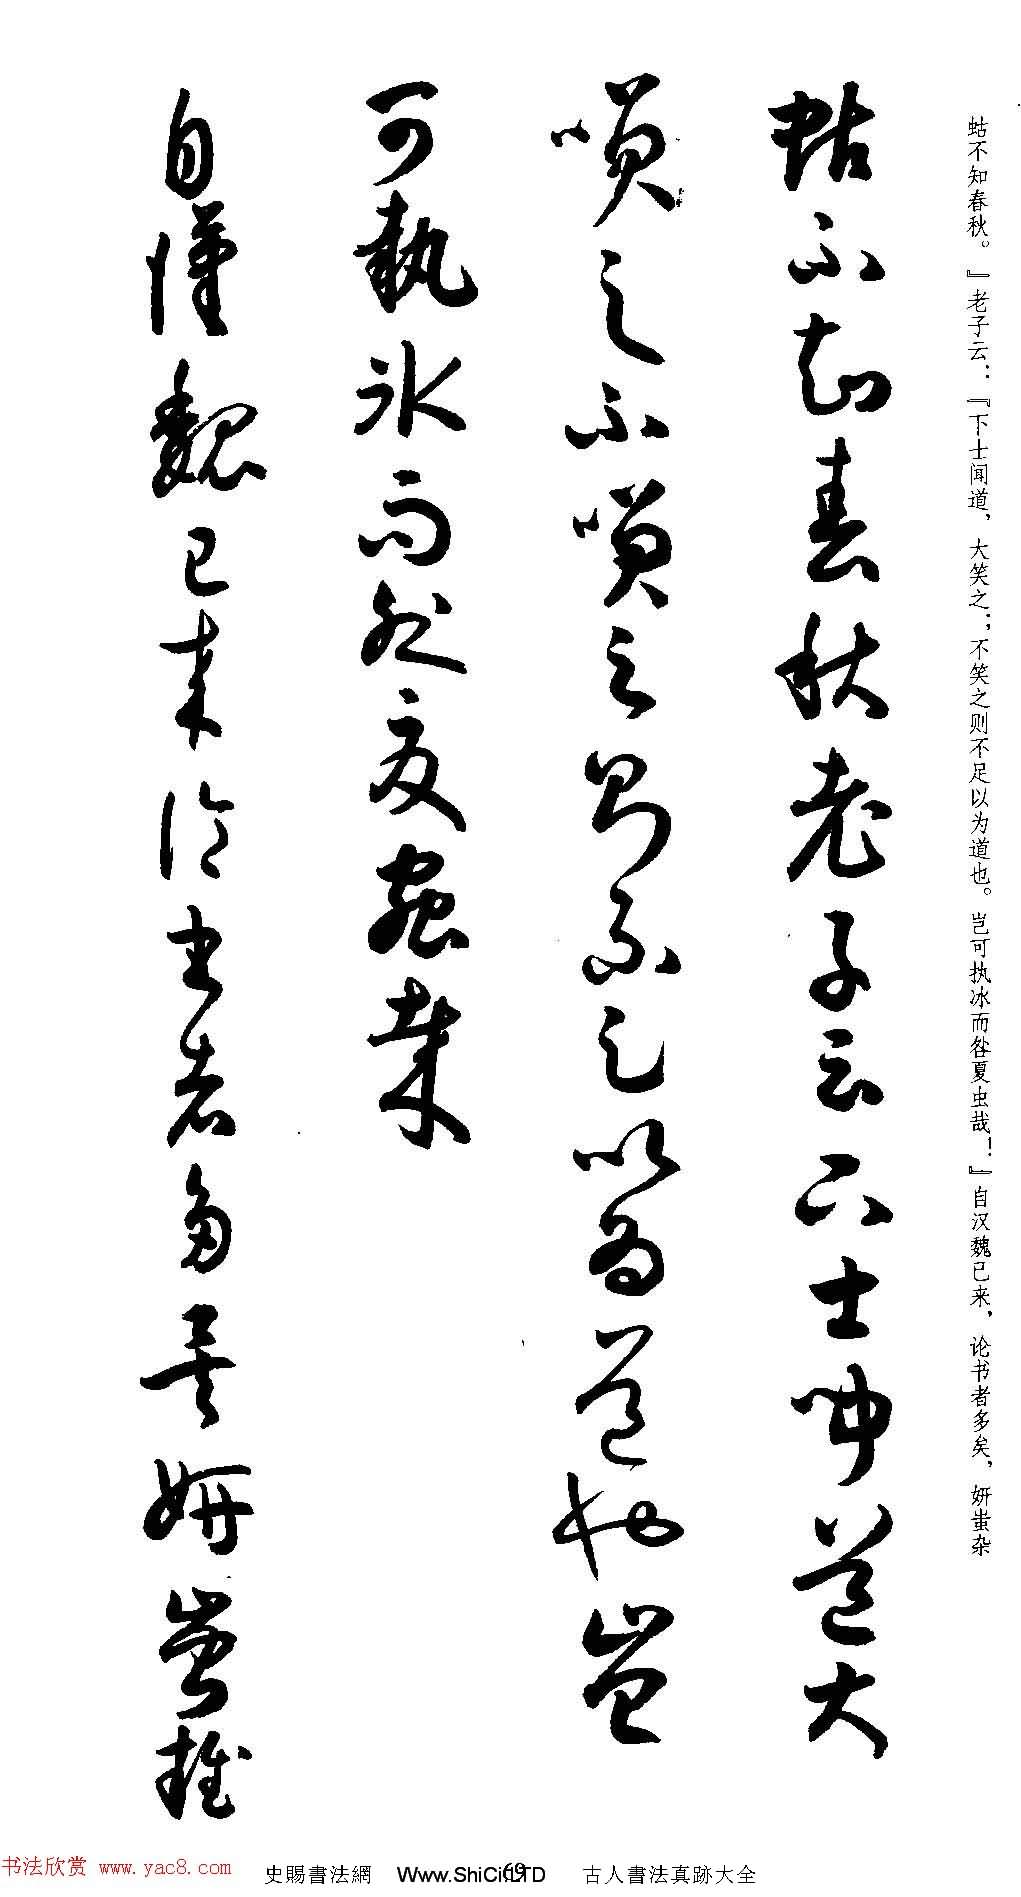 蛄不知春秋。』老子云：『下士闻道，大笑之；不笑之则不足以为道也。岂可执冰而咎夏虫哉！』自汉魏已来，论书者多矣，妍蚩杂
蛄不知春秋老子云下士聞道大
咲之不咲之則不足以為道也豈
可執冰而咎夏蟲哉
自漢魏已来論書者多矣妍蚩雜
书法欣赏 www.yac8.com 史賜書法網 Www.ShiCi.LTD 古人書法真跡大全